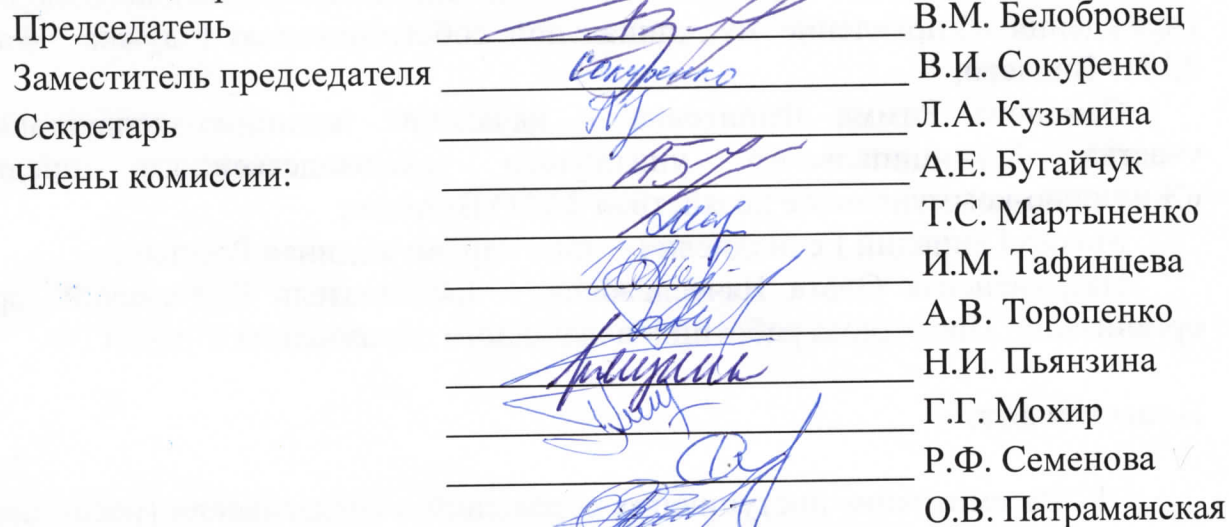 Председатель В.М. Белобровец
Заместитель председателя Сокуренко В.И. Сокуренко
Секретарь Л.А. Кузьмина
Члены комиссии: А.Е. Бугайчук
Т.С. Мартыненко
И.М. Тафинцева
А.В. Торопенко
Н.И. Пьянзина
Г.Г. Мохир
Р.Ф. Семенова
О.В. Патраманская